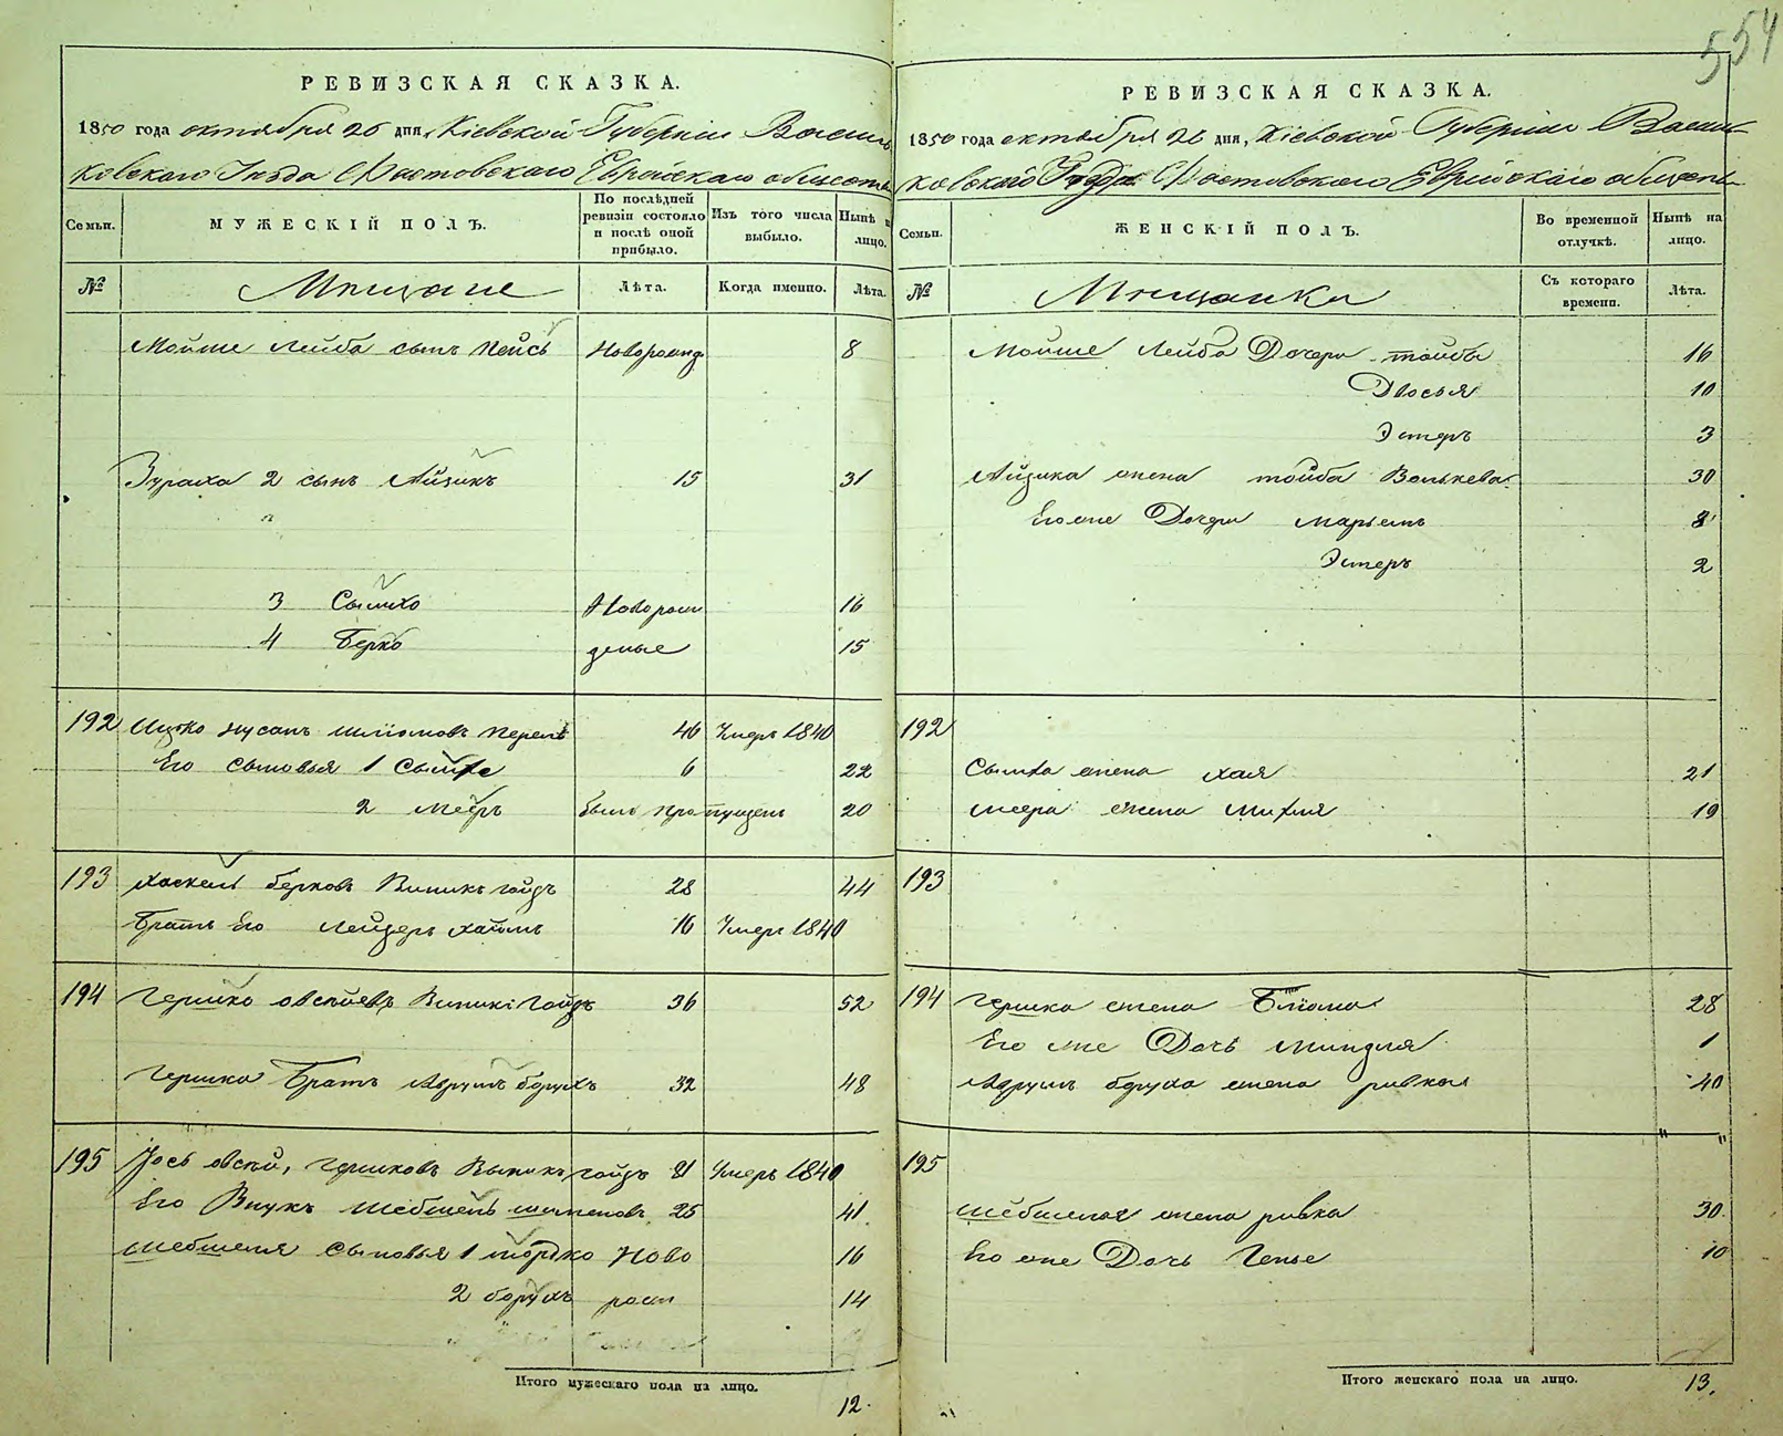 554
РЕВИЗСКАЯ СКАЗКА.
1850 года октября 26 дня, Кіевской Губерніи Василь
ковскаго Уѣзда Фастовскаго Еврейскаго общества
Семьи.
МУЖЕСКІЙ ПОЛЪ.
По послѣдней ревизіи состояло и послѣ оной прибыло.
Изъ того числа выбыло.
Нынѣ на лицо.
№
Мещане
Лѣта.
Когда именно.
Лѣта.
Мойше Лейба сынъ Пейсъ Новорожд 8
Зураха 2 сынъ Айзикъ 15 31
3 Сымхо Новорож 16
4 Берко деные 15
192 Ицко Нусанъ Шліомовъ 46 Умеръ 1840
Его Сыновья 1 Сымхе 6 22
2 Мееръ былъ пропущенъ 20
193 Хаскель Берковъ Виникъ гойзъ 28 44
Братъ Его Лейзеръ Хаимъ 16 Умеръ 1840
194 Гершко Овсѣйевъ Виникъ Гойзъ 36 52
Гершка Братъ Аврумъ Борухъ 32 48
195 Іось Овсѣй, Гершковъ Виникъ гойзъ 81 Умеръ 1840
Его Внукъ Шебшель 25 41
Шебшеля Сыновья 1 Мордко Ново 16
2 Борухъ рож 14
Итого мужескаго пола на лицо.
12.
РЕВИЗСКАЯ СКАЗКА.
1850 года октября 26 дня, Кіевской Губерніи Василь
ковскаго Уѣзда Фастовскаго Еврейскаго общества
Семьи.
ЖЕНСКІЙ ПОЛЪ.
Во временной отлучкѣ.
Нынѣ на лицо.
№
Мещанки
Съ котораго времени.
Лѣта.
Мойше Лейба Дочери Тойба 16
Двося 10
Эстеръ 3
Айзика жена Тойба Волькева 30
Его же Дочери Марьемъ 8
Эстеръ 2
192
Сымха жена Хая 21
Меера жена Михля 19
193
194 Гершка жена Бліома 28
Его же Дочь Миндля 1
Аврумъ Боруха жена Ривка 40
195
Шебшеля жена Ривка 30
Его же Дочь Генье 10
Итого женскаго пола на лицо.
13.